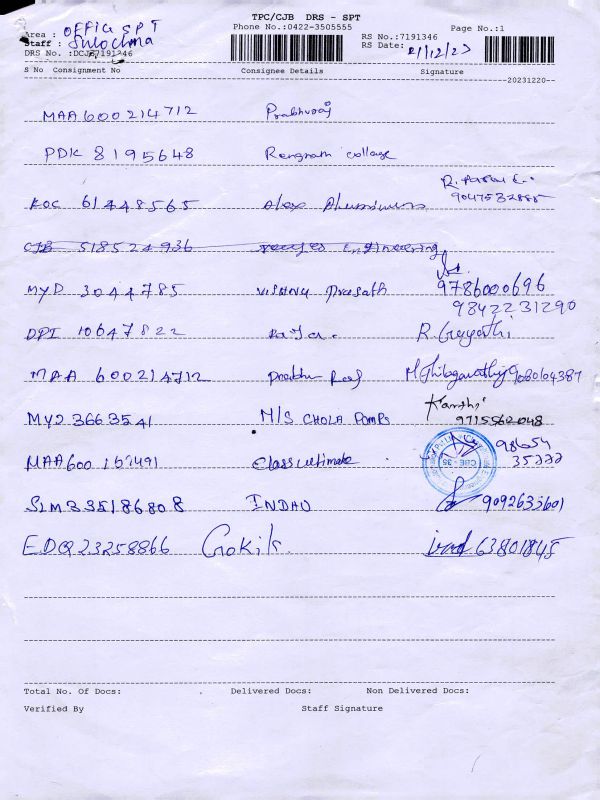 TPC/CJB DRS - SPT
Phone No.:0422-3505555
Page No.:1
Area : OFFIC SPT
Staff : Sulochna
RS No.:7191346
RS Date: 21/12/23
DRS No. :DCJB7191346
S No Consignment No Consignee Details Signature
20231220
MAA600214712 Prabhuraj
PDK 8195648 Rangnath collage
KOC 61448565 Alex Aluminiums 9047532885
CJB 518524936 Engineering
MYD 3044785 Vishnu Prasath 9786000696
9842231290
DPI 10647822 Raja. R. Gayathri
MAA 600214712 Prabhu Raj M. Thilagavathy 9080104387
MYD 3663541 M/S CHOLA PUMPS 9715562048
MAA600 167491 Classultimate 98654
35222
CBE - 35
SLM335186808 INDAU 9092633601
EDQ23258866 Gokila. 63801845
Total No. Of Docs: Delivered Docs: Non Delivered Docs:
Verified By Staff Signature